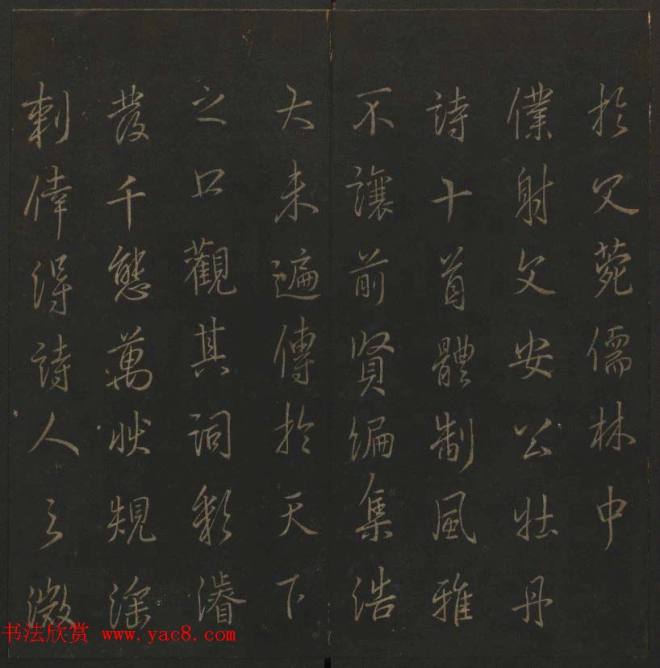 於文菀儒林中
僕射文安公牡丹
詩十首體制風雅
不讓前賢編集浩
大未遍傳於天下
之口觀其詞彩濬
發千態萬狀規滛
刺倖得詩人之微
书法欣赏 www.yac8.com